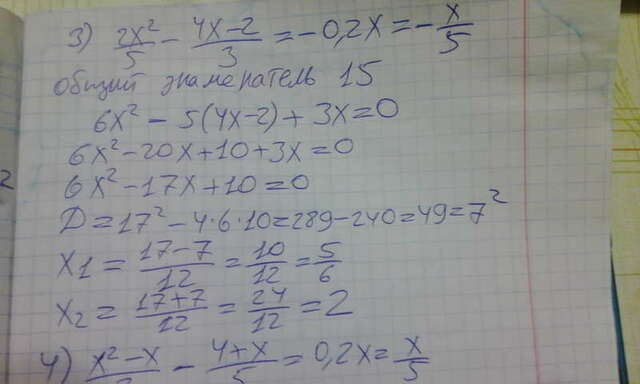 3) 2x²/5 − (4x−2)/3 = −0,2x = −x/5
общий знаменатель 15
6x² − 5(4x−2) + 3x = 0
6x² − 20x + 10 + 3x = 0
6x² − 17x + 10 = 0
D = 17² − 4·6·10 = 289 − 240 = 49 = 7²
x1 = (17−7)/12 = 10/12 = 5/6
x2 = (17+7)/12 = 24/12 = 2
4) (x²−x)/ − (4+x)/5 = 0,2x = x/5
2